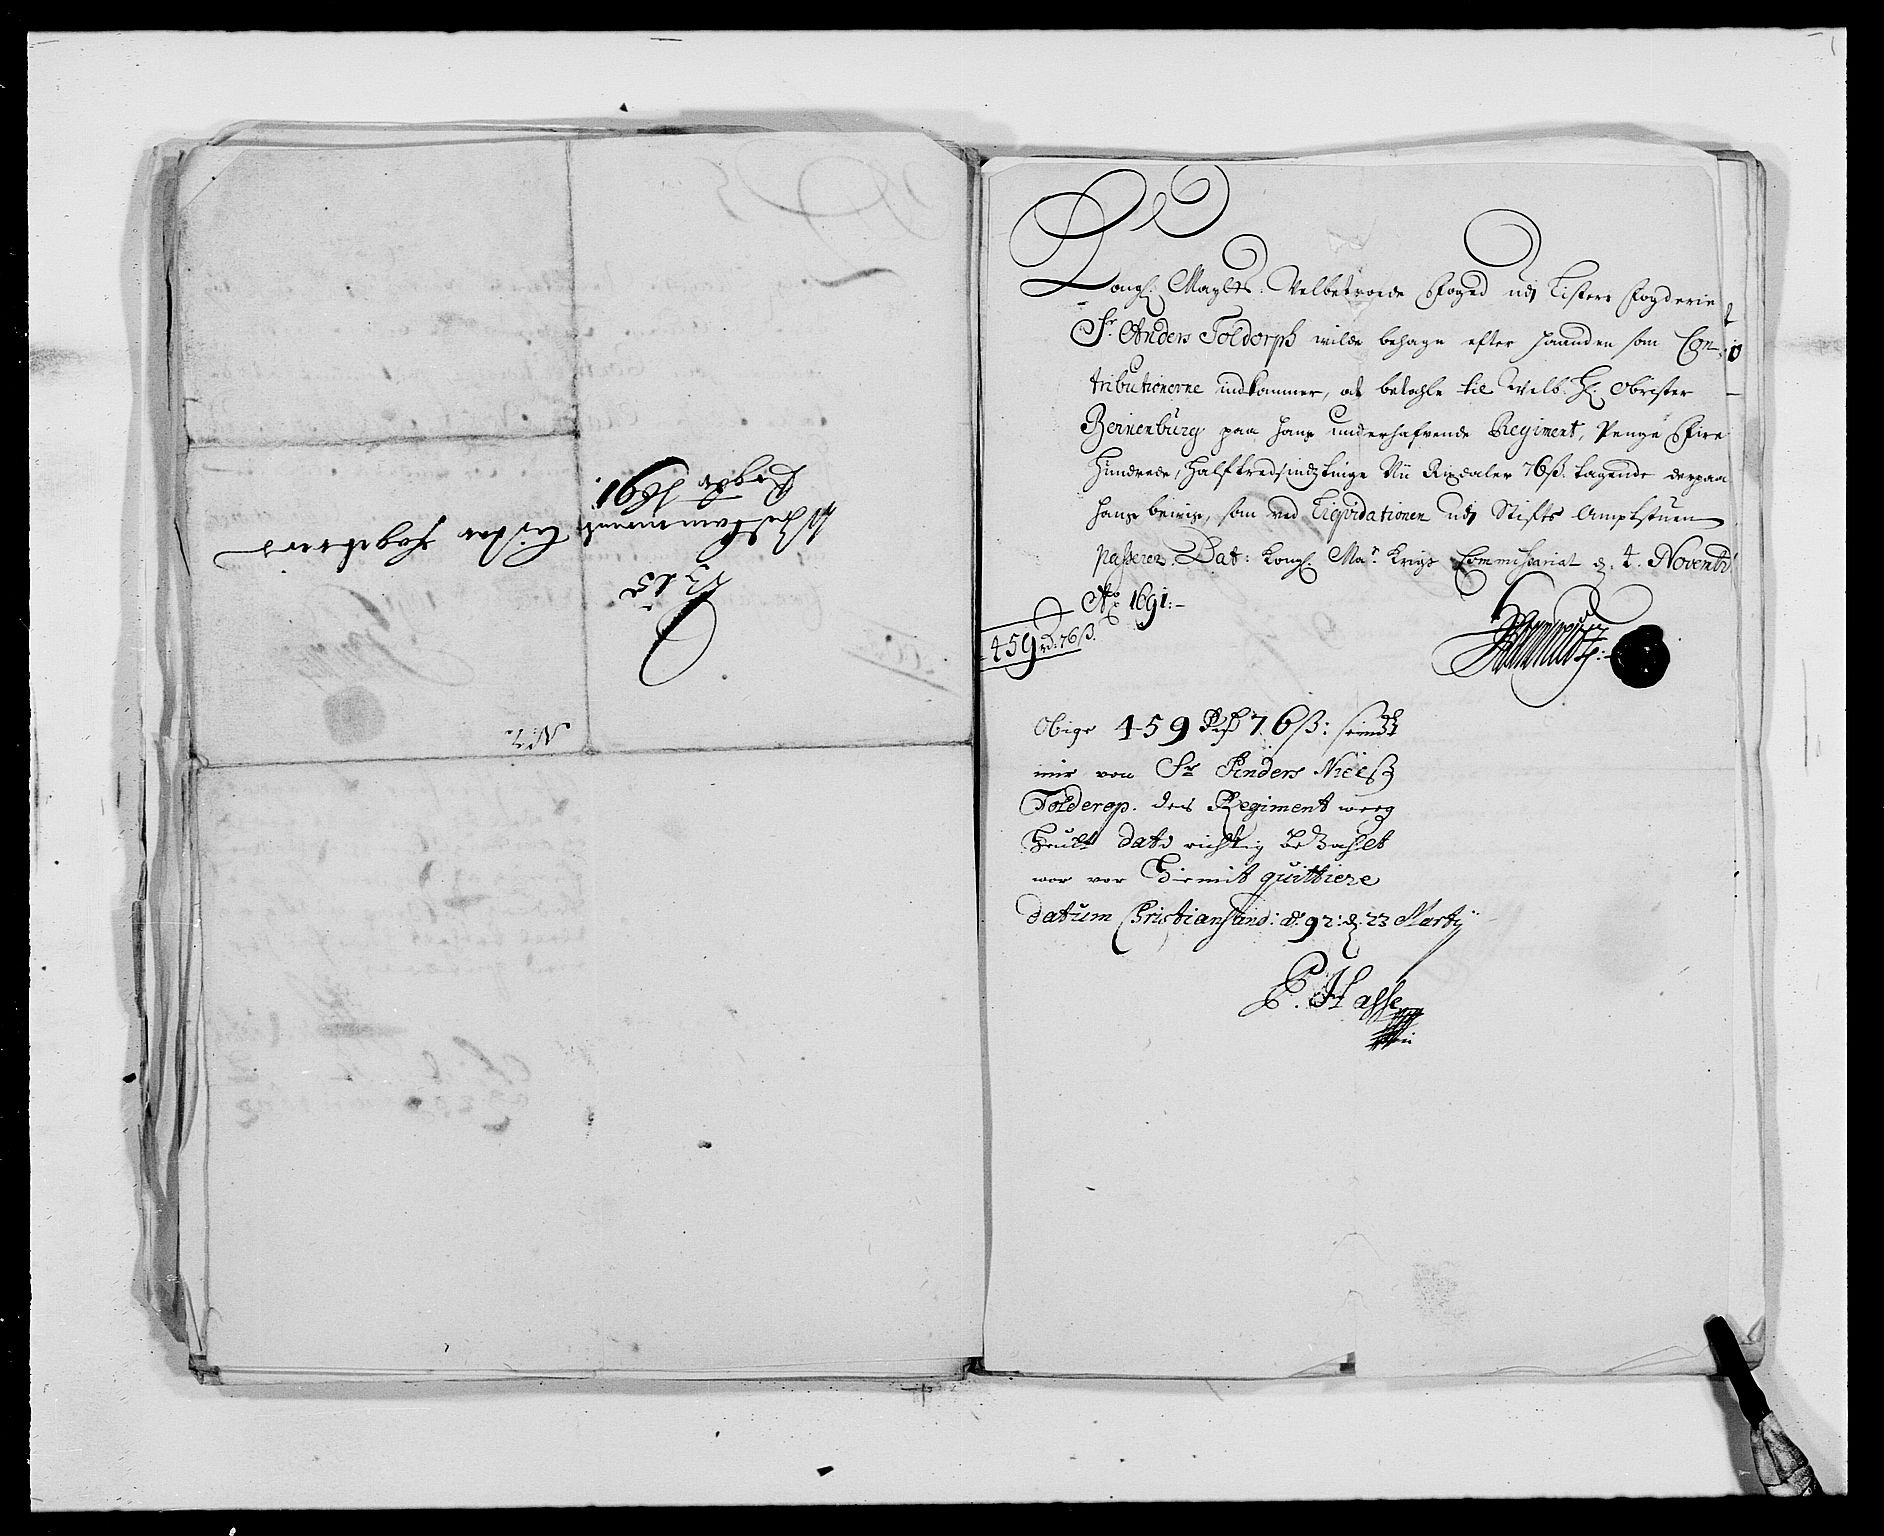 Kongl: Maÿtts. Velbetroede Foged udj Listers Fogderie
Sr. Anders Toldorph wilde behage efter haanden som Con-
tributionerne indkommer, at betahle til Welb: Hr. Obrister
Bernenburg paa hans underhafvende Regiment, Penge Fire
Hundrede, Halftredsindstiuge Nii Rixdaler 76 ß. tagende derpaa
hans beviis, som ved Liqvidationen udj Stifts Amptstuen
passerer. Dat: Kongl: Ma.ts Krigs Commissariat d. 4. Novembr
Ao 1691:-
459 rd: 76 ß.
Obige 459 Rß 76 ß: seindt
mir von Sr Anders Nielß
Tolderop. des Regiment weg
Heute dato richtig bezahlt
wor vor Hiermit quittiere
datum Christiansand: Ao. 92: d: 23 Martÿ
P. Hasse
No 15
Lister Fogderie
1691.
No: 7.